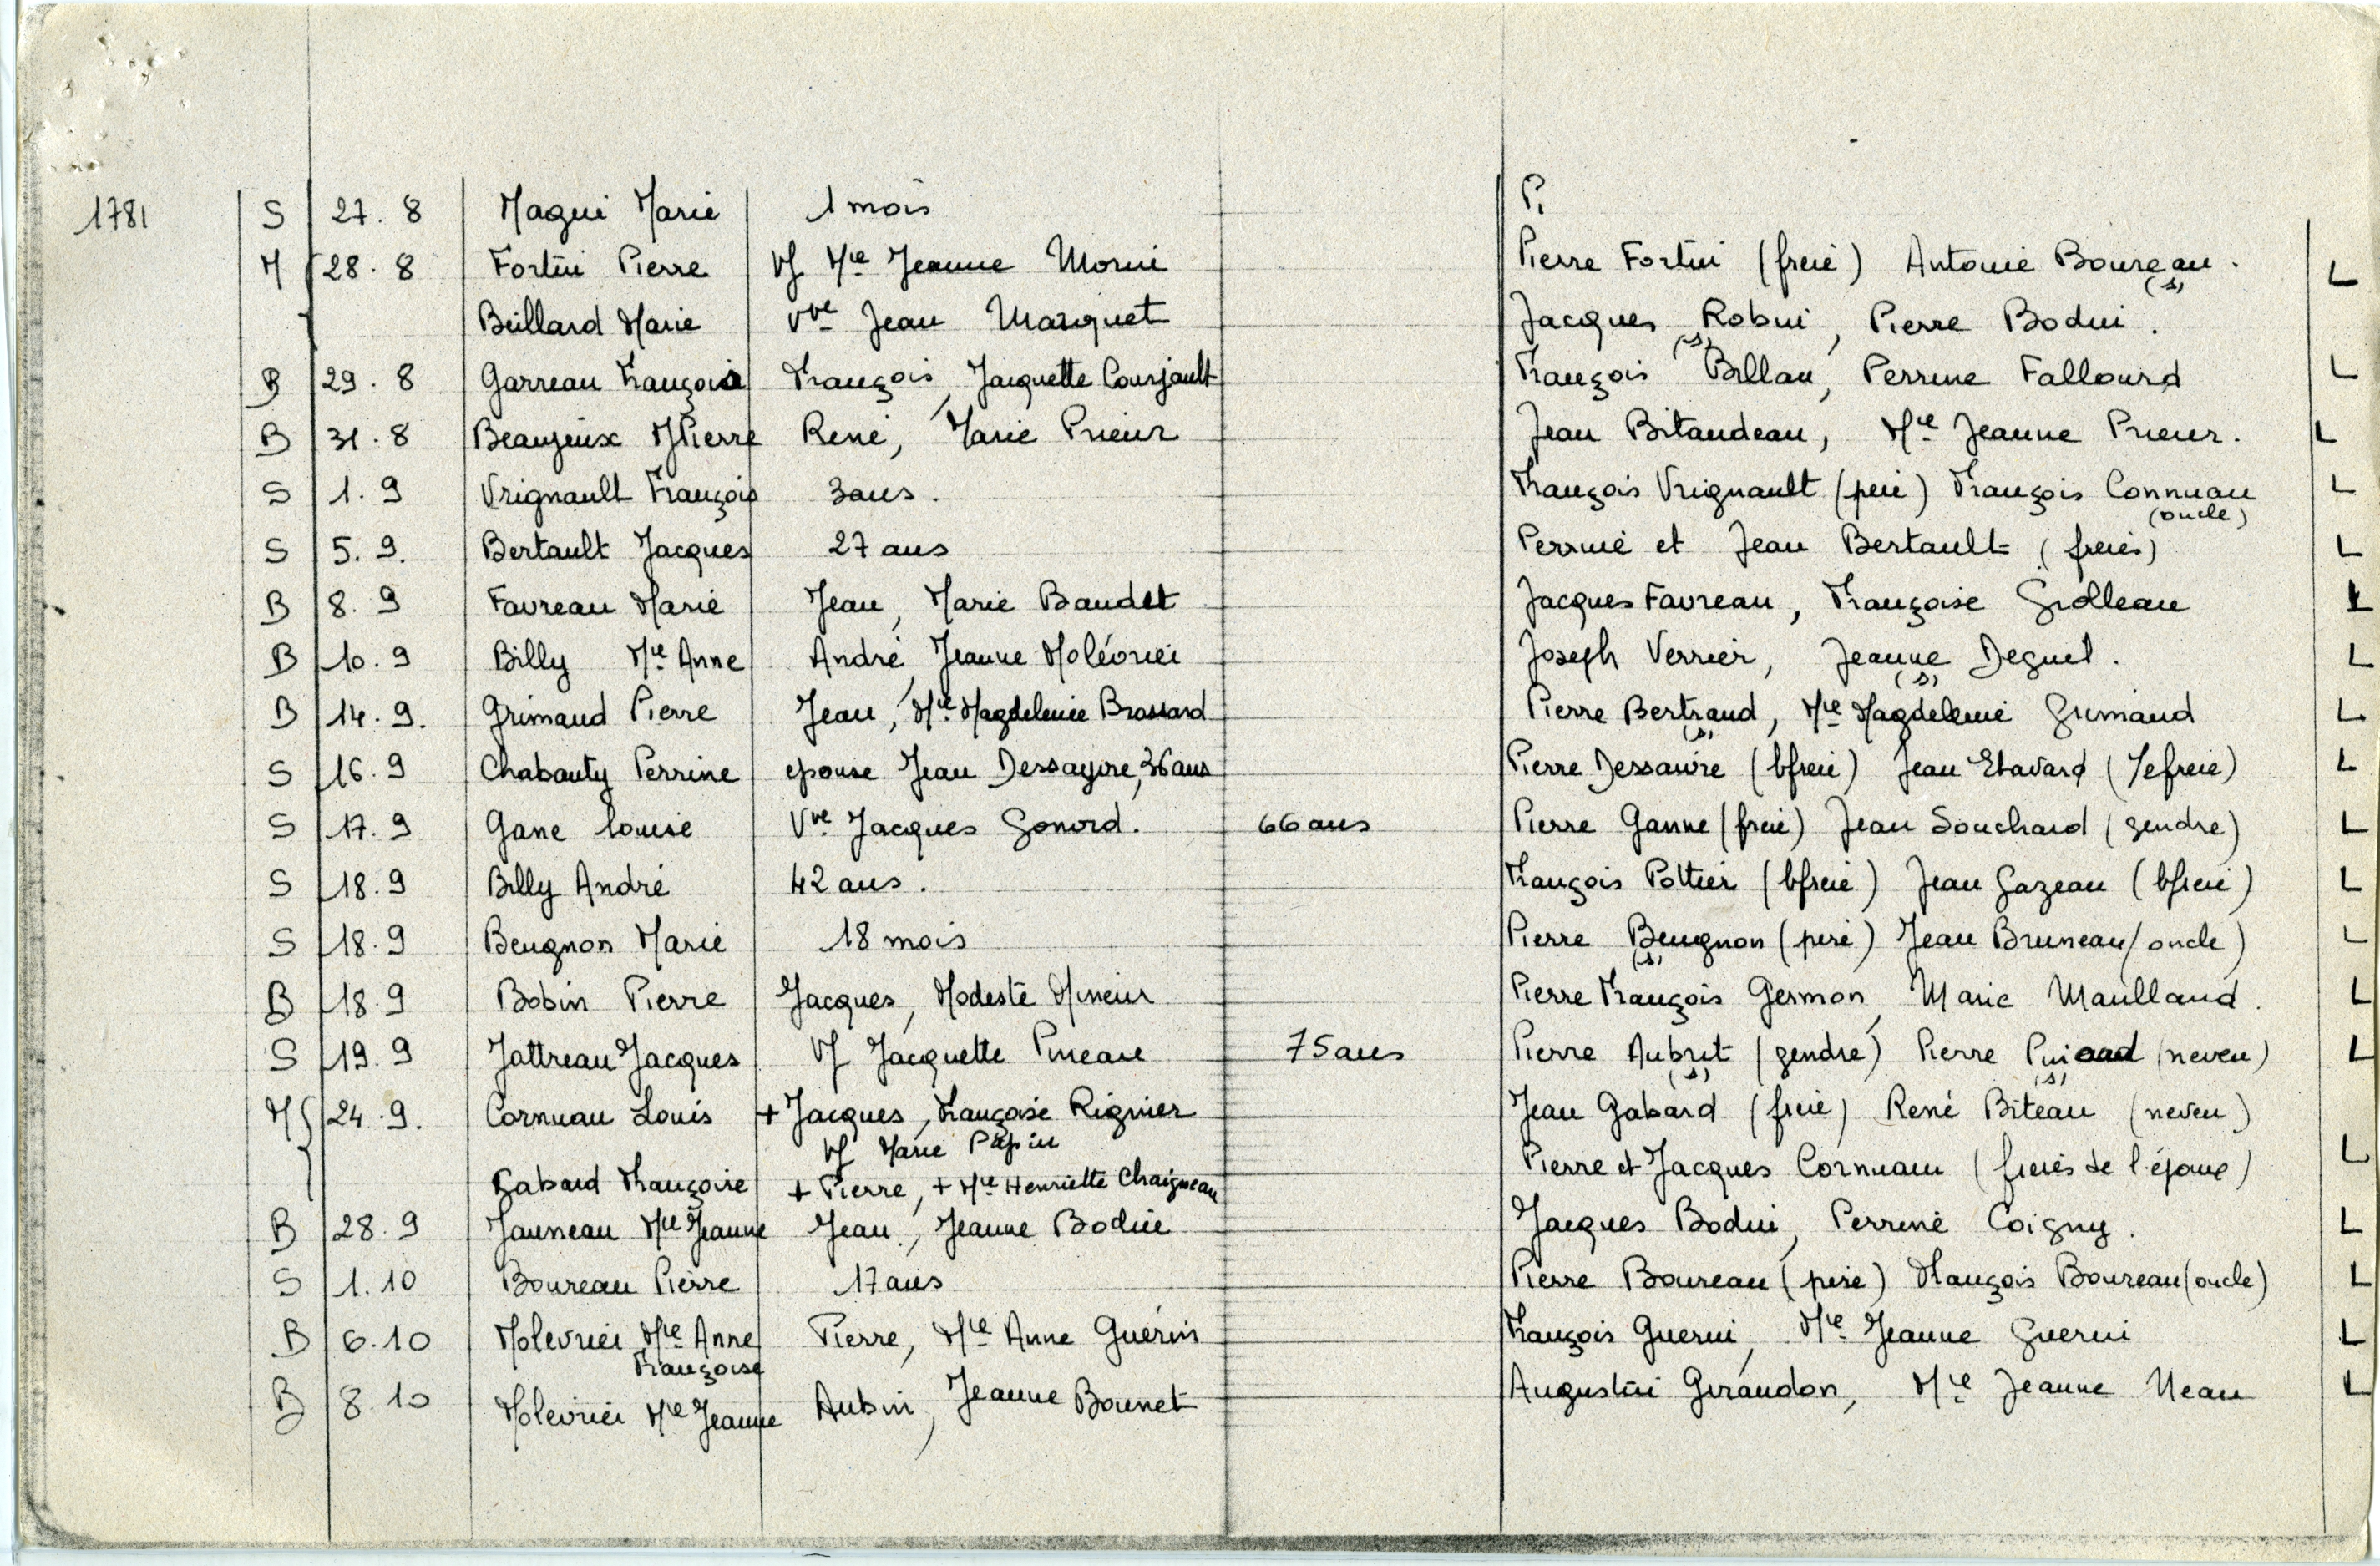 1781 S 27. 8 Magui Marie 1 mois P.
M 28. 8 Fortin Pierre Vf Mie Jeanne Morin Pierre Fortin (frere) Antoine Boureau. L
(s)
Beillard Marie Vve Jean Marquet Jacques Robin, Pierre Bodin.
(s)
B 29. 8 Garreau François François, Jacquette Courjault François Billau, Perrine Fallourd L
B 31. 8 Beaujeux JPierre René, Marie Prieur Jean Bitaudeau, Mie Jeanne Prieur. L
S 1. 9 Vrignault François 3ans. François Vrignault (pere) François Connuau L
(oncle)
S 5. 9. Bertault Jacques 27 ans Perrine et Jean Bertault (freres) L
B 8. 9 Favreau Marie Jean, Marie Baudet Jacques Favreau, Françoise Grolleau L
B 10. 9 Billy Mie Anne André, Jeanne Molévrier Joseph Verrier, Jeanne Deguil. L
(s)
B 14. 9. Grimaud Pierre Jean, Mie Magdeleine Brossard Pierre Bertraud, Mie Magdeleine Grimaud L
(s)
S 16. 9 Chabauty Perrine epouse Jean Dessayvre, 36 ans Pierre Dessaivre (bfrere) Jean Etavard (1/2frere) L
S 17. 9 Gane Louise Vve Jacques Gonord. 66 ans Pierre Ganne (frere) Jean Souchard (gendre) L
S 18. 9 Billy André 42 ans. François Pottier (bfrere) Jean Gazeau (bfrere) L
S 18. 9 Beugnon Marie 18 mois Pierre Beugnon (pere) Jean Bruneau (oncle) L
(s)
B 18. 9 Bobin Pierre Jacques, Modeste Mineur Pierre François Germon, Marie Maulland. L
S 19. 9 Jattreau Jacques Vf Jacquette Pineau 75 ans Pierre Aubrit (gendre) Pierre (neveu) L
(s) (s)
M 24. 9. Cornuau Louis + Jacques, Françoise Rignier Jean Gabard (frere) René Biteau (neveu)
Vf Marie Papin
Pierre et Jacques Cornuau (freres de l'époux) L
Gabard Françoise + Pierre, + Mie Henriette Chaigneau
B 28. 9 Jauneau Mie Jeanne Jean, Jeanne Bodin Jacques Bodin, Perrine Coigny. L
S 1. 10 Boureau Pierre 17 ans Pierre Boureau (pere) François Boureau (oncle) L
B 6. 10 Molevrier Mie Anne Pierre, Mie Anne Guérin François Guerin, Mie Jeanne Guerin L
Françoise
B 8. 10 Molevrier Mie Jeanne Aubin, Jeanne Bounet Augustin Giraudon, Mie Jeanne Neau L